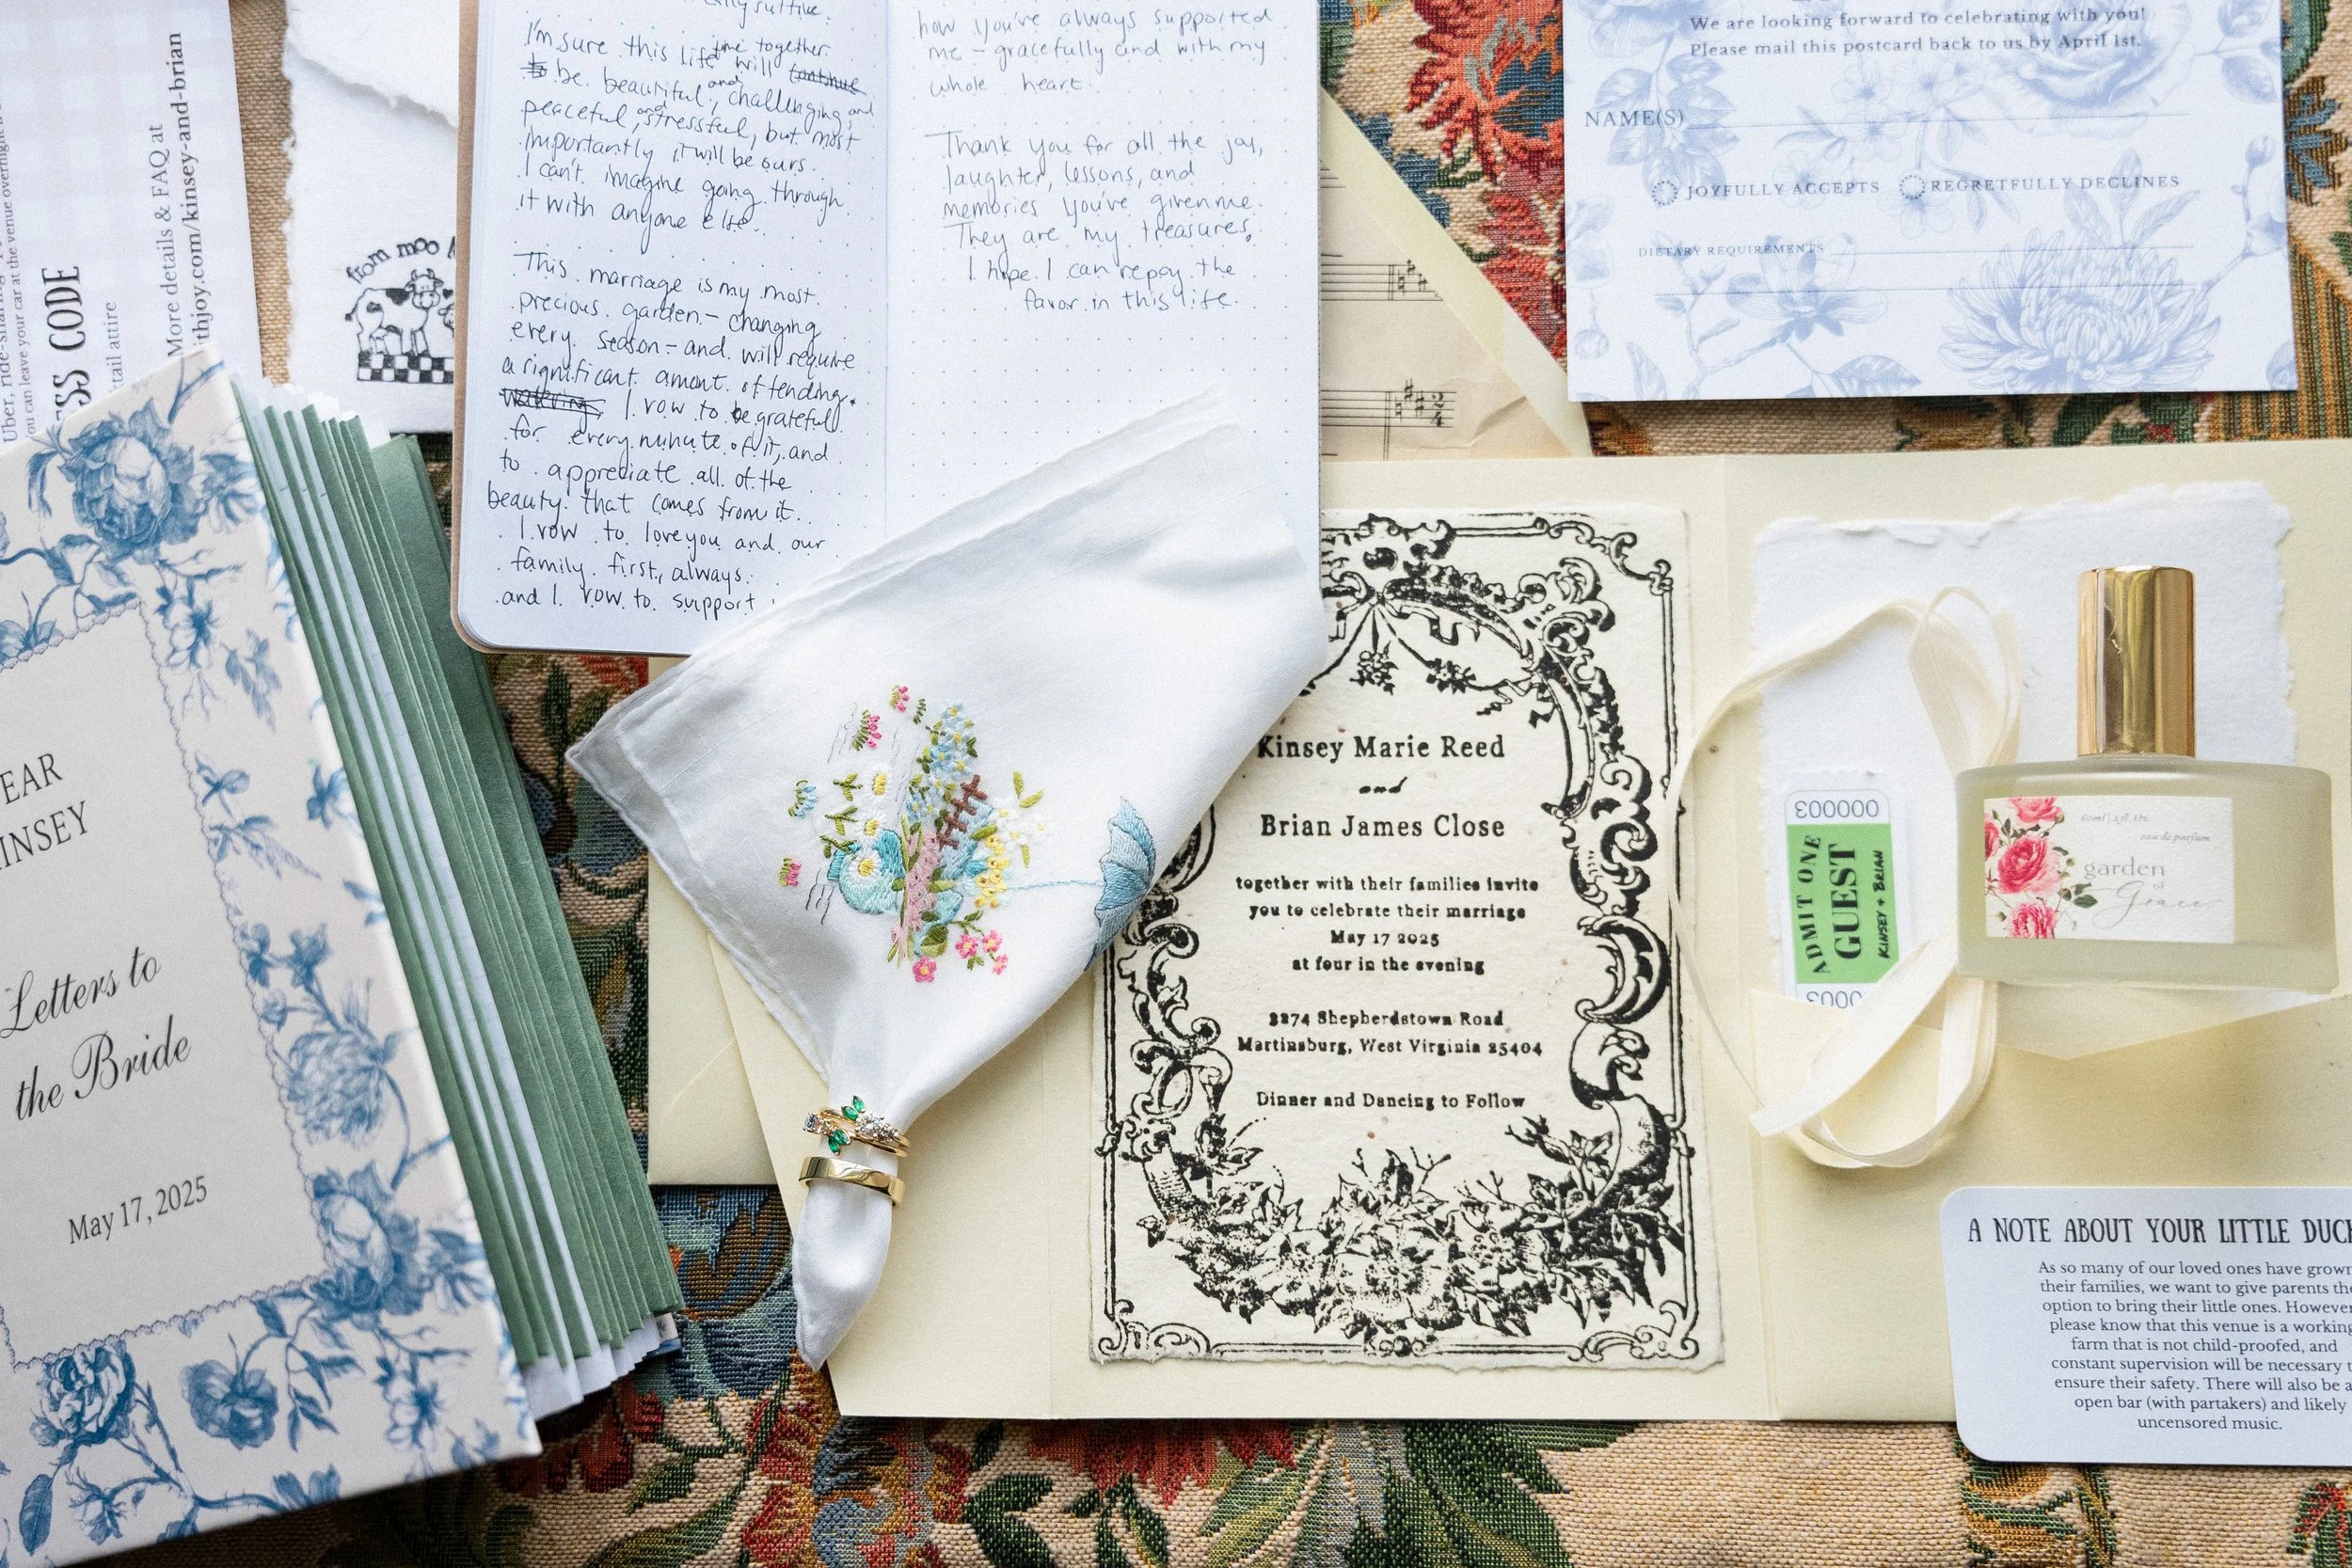 Uber, ride-sharing
you can leave your car at the venue overnight
ESS CODE
tail attire
More details & FAQ at
ithjoy.com/kinsey-and-brian
from moo
I'm sure this life time together
will continue
to be beautiful, and challenging, and
peaceful, and stressful, but most
importantly it will be ours.
I can't imagine going through
it with anyone else.
This marriage is my most
precious garden - changing
every season - and will require
a significant amount of tending.
watering. I vow to be grateful
for every minute of it, and
to appreciate all of the
beauty that comes from it.
I vow to love you and our
family first, always.
and I vow to support
how you've always supported
me - gracefully and with my
whole heart.
Thank you for all the joy,
laughter, lessons, and
memories you've given me.
They are my treasures.
I hope I can repay the
favor in this life.
We are looking forward to celebrating with you!
Please mail this postcard back to us by April 1st.
NAME(S)
JOYFULLY ACCEPTS REGRETFULLY DECLINES
DIETARY REQUIREMENTS
EAR
INSEY
Letters to
the Bride
May 17, 2025
Kinsey Marie Reed
and
Brian James Close
together with their families invite
you to celebrate their marriage
May 17 2025
at four in the evening
3274 Shepherdstown Road
Martinsburg, West Virginia 25404
Dinner and Dancing to Follow
000003
ADMIT ONE
GUEST
KINSEY + BRIAN
0003
60ml | 2fl. oz.
eau de parfum
garden
of
Grace
A NOTE ABOUT YOUR LITTLE DUC
As so many of our loved ones have grown
their families, we want to give parents th
option to bring their little ones. However
please know that this venue is a working
farm that is not child-proofed, and
constant supervision will be necessary t
ensure their safety. There will also be a
open bar (with partakers) and likely
uncensored music.